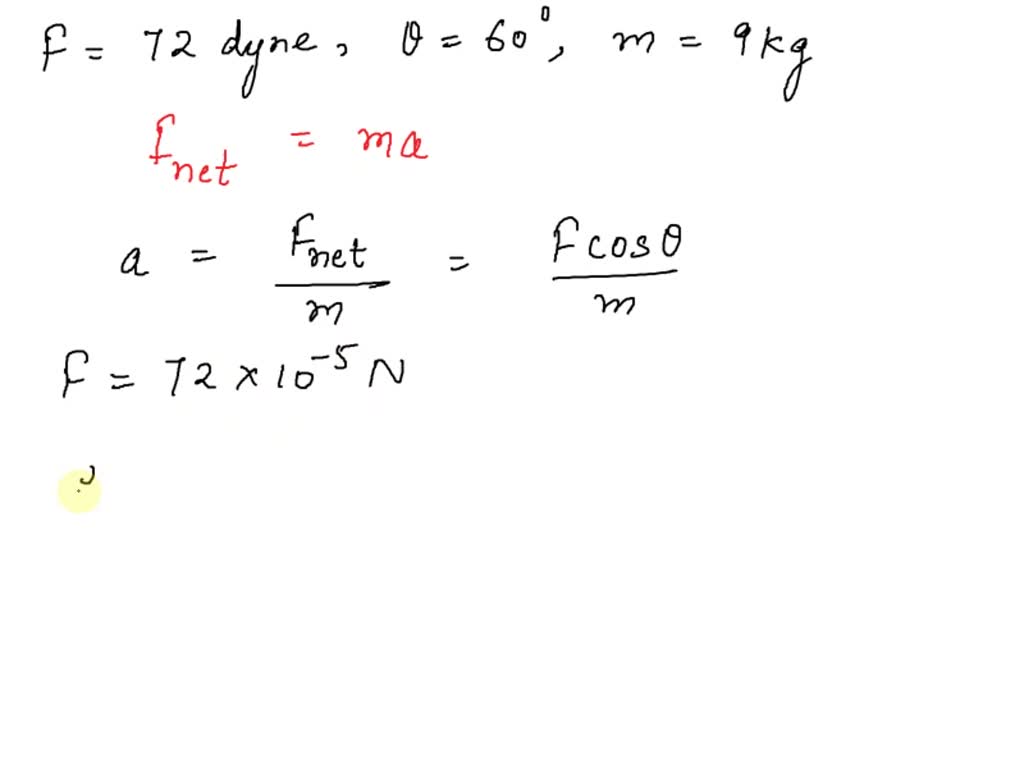 F = 72 dyne, θ = 60°, m = 9 kg
F_net = ma
a = F_net / m = F cos θ / m
F = 72 × 10^-5 N